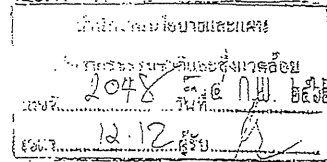 สำนักงานนโยบายและแผน
ทรัพยากรธรรมชาติและสิ่งแวดล้อม
เลขที่.....2048.....วันที่ ก.พ.
เวลา.....12.12.....ผู้รับ